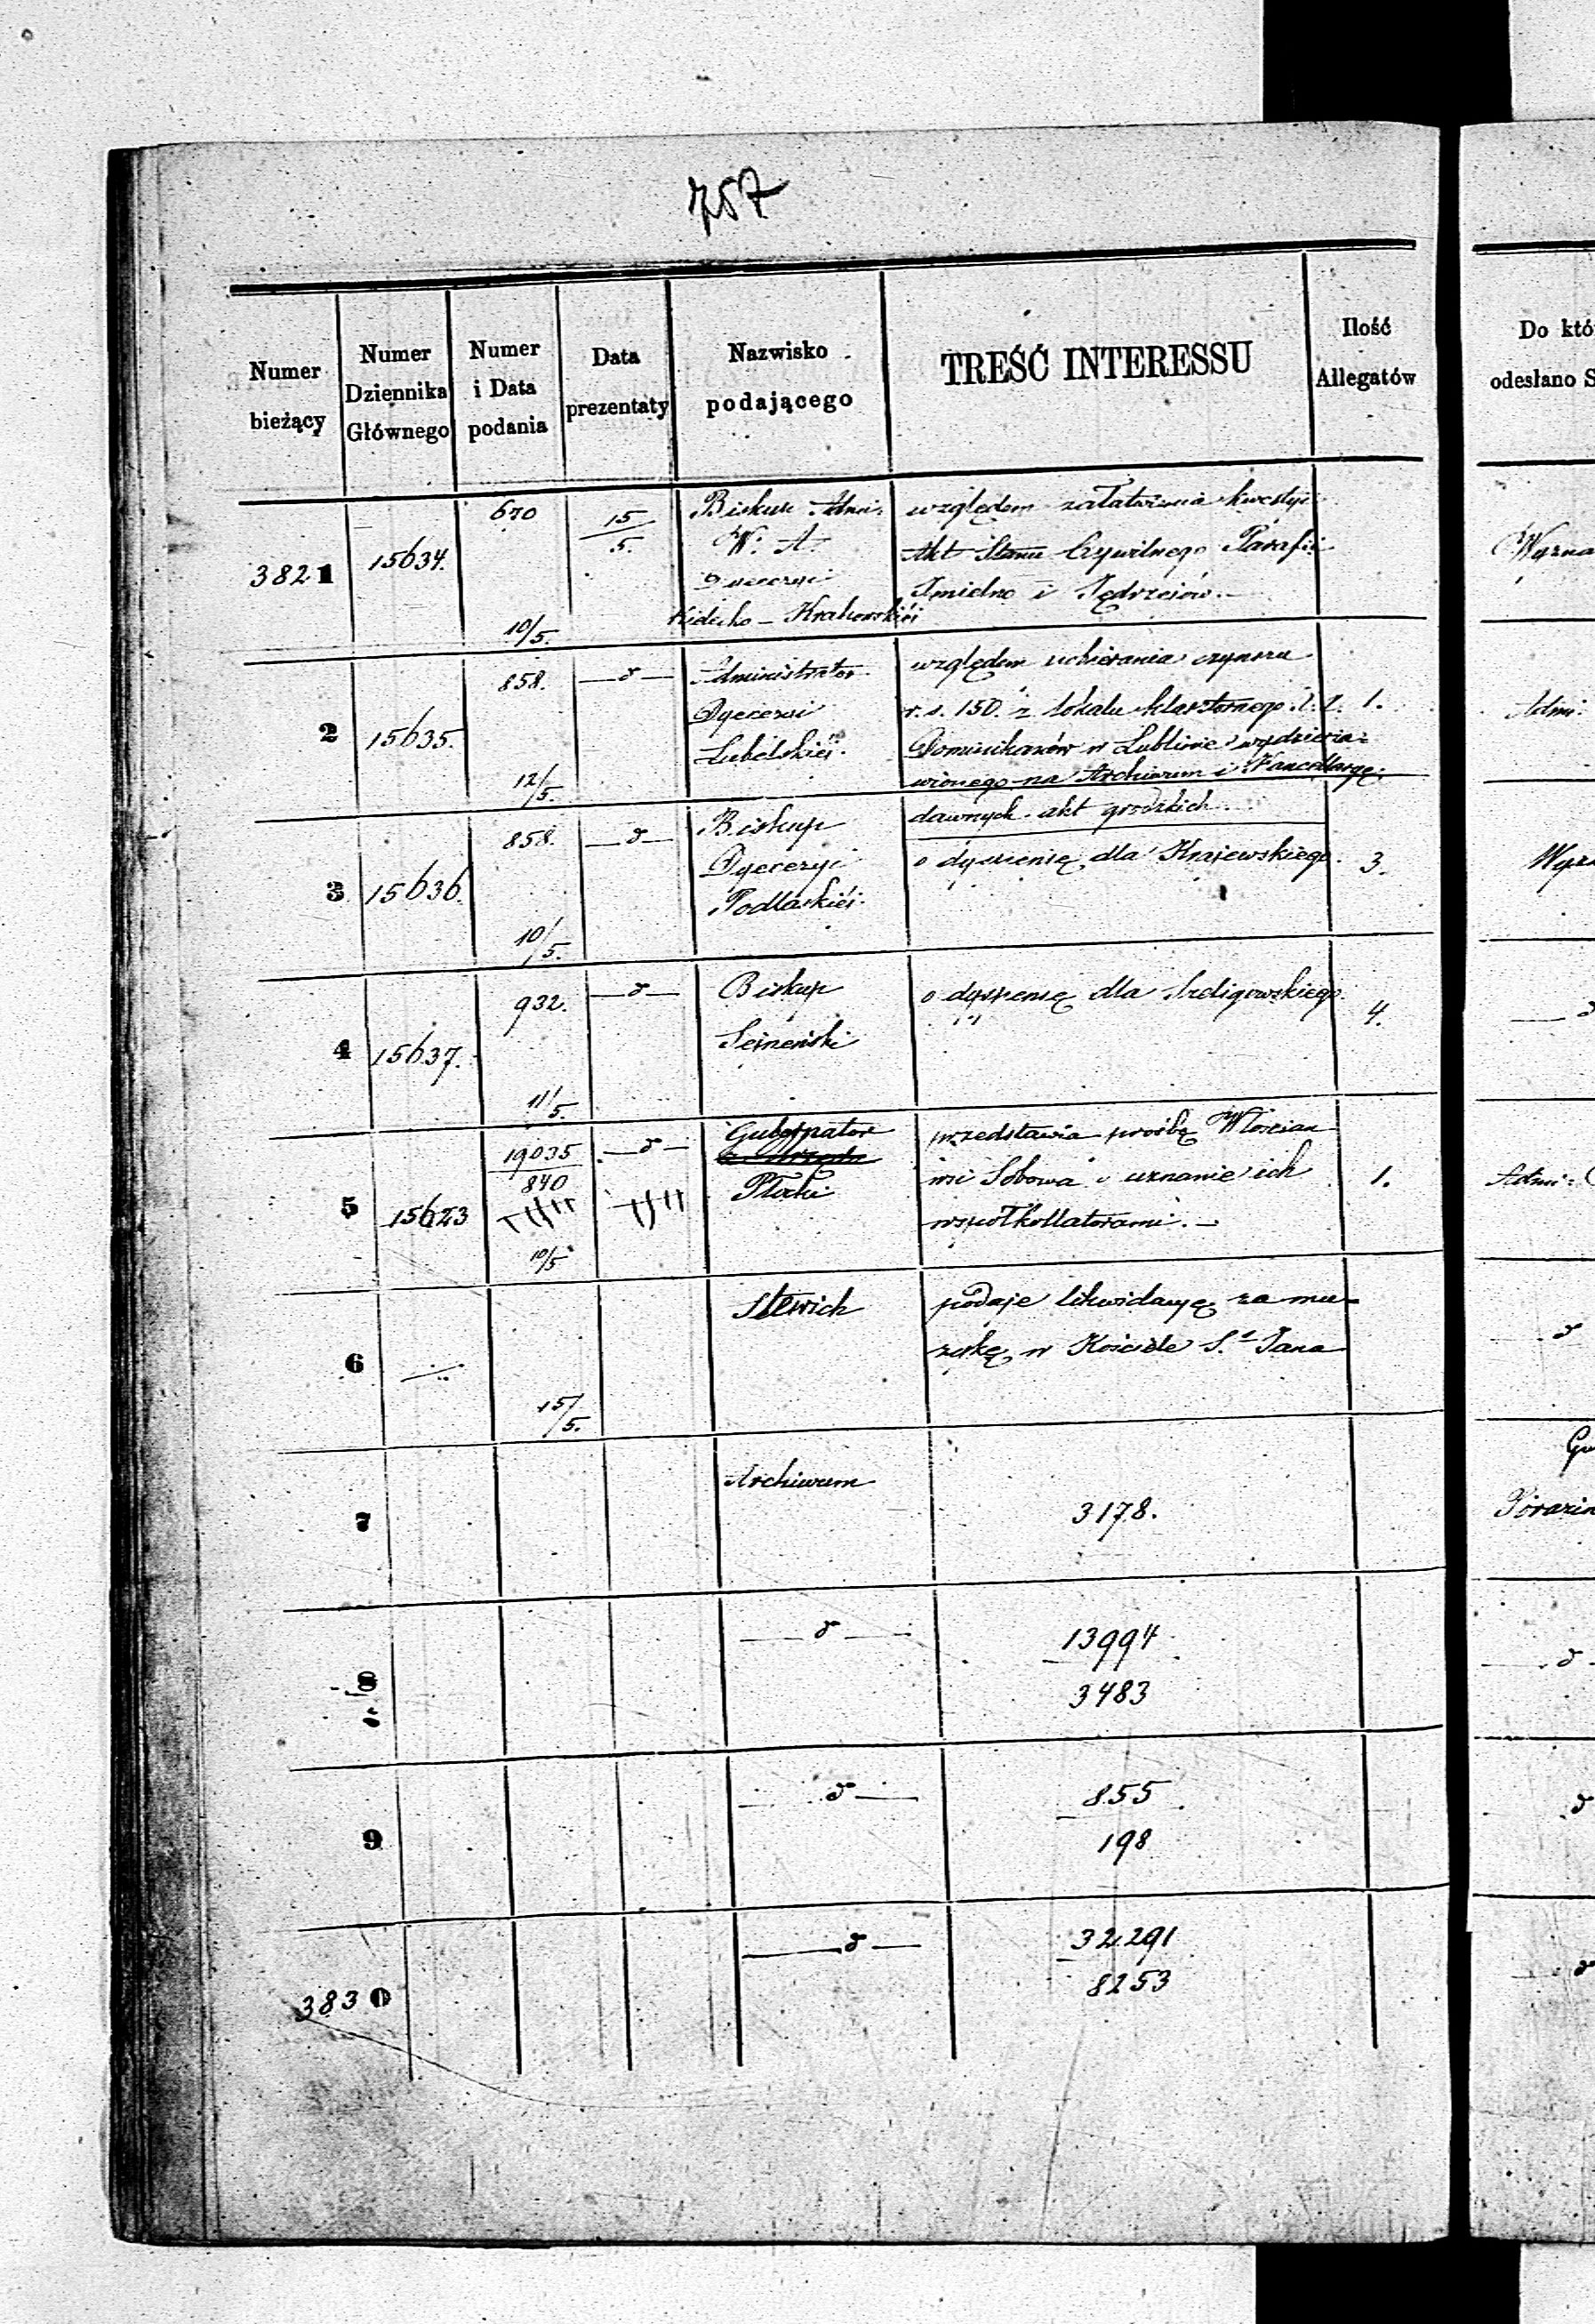 757
Numer bieżący
Numer Dziennika Głównego
Numer i Data podania
Data prezentaty
Nazwisko podającego
TREŚĆ INTERESSU
Ilość Allegatów
Do któ
odesłano S
3821
15634.
670
10/5.
15/5.
Biskup Admi:
W. A.
Dyecezyi
Kielecko - Krakowskiéi
względem załatwienia kwestyi
Akt Stanu Cywilnego Parafii
Imielno i Jędrzeiów. —
2
15635.
858.
12/5.
— d —
Administrator
Dyecezyi
Lubelskiéi.
względem uchierania czynszu
r. s. 150. z lokalu klasztornego
Dominikanów w Lublinie wydzierża=
wionego na Archiwum i Kancellaryę
dawnych akt grodzkich
1.
Admi:
3
15636.
858.
10/5.
— d —
Biskup
Dyecezyi
Podlaskiéi.
o dyspensę dla Krajewskiego.
3.
4
15637.
932.
11/5.
— d —
Biskup
Seineński
o dyspensę dla
4.
— d
5
15623
19035
840
10/5
— d —
Gubernator
Płocki
przedstawia prośbę Włościan
wsi Sobowa o uznanie ich
współkollatorami. —
1.
Admi:
6
15/5.
podaje likwidacyę za mu=
zykę w Kościele S.t Jana
d
7
Archiwum
3178.
8
— d —
13994
3483
d
9
— d —
855
198
d
3830
— d —
32291
8253
d